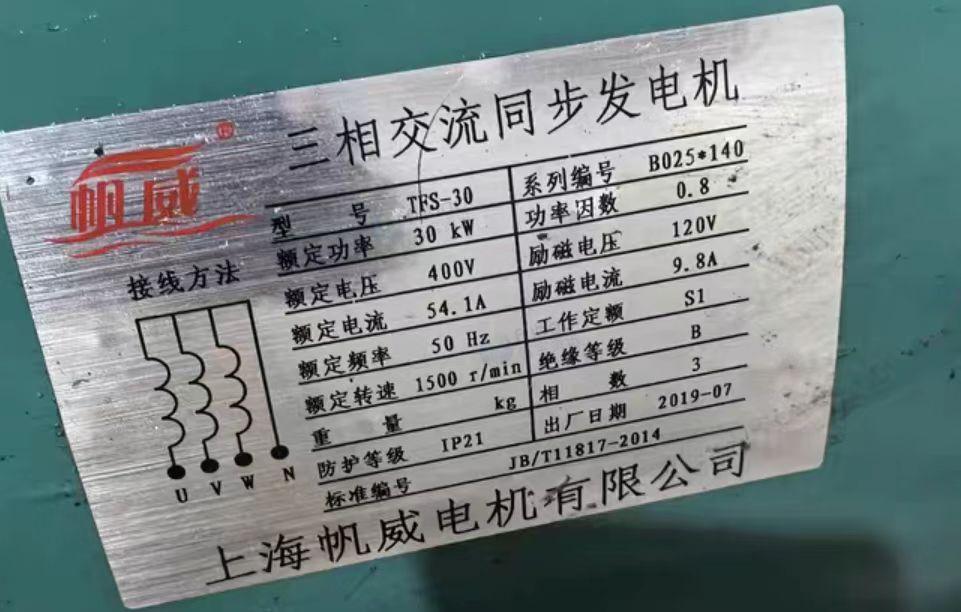 帆威®
三相交流同步发电机
型 号 TFS-30 系列编号 B025*140
额定功率 30 kW 功率因数 0.8
额定电压 400V 励磁电压 120V
额定电流 54.1A 励磁电流 9.8A
额定频率 50 Hz 工作定额 S1
额定转速 1500 r/min 绝缘等级 B
重 量 kg 相 数 3
防护等级 IP21 出厂日期 2019-07
标准编号 JB/T11817-2014
接线方法
U V W N
上海帆威电机有限公司